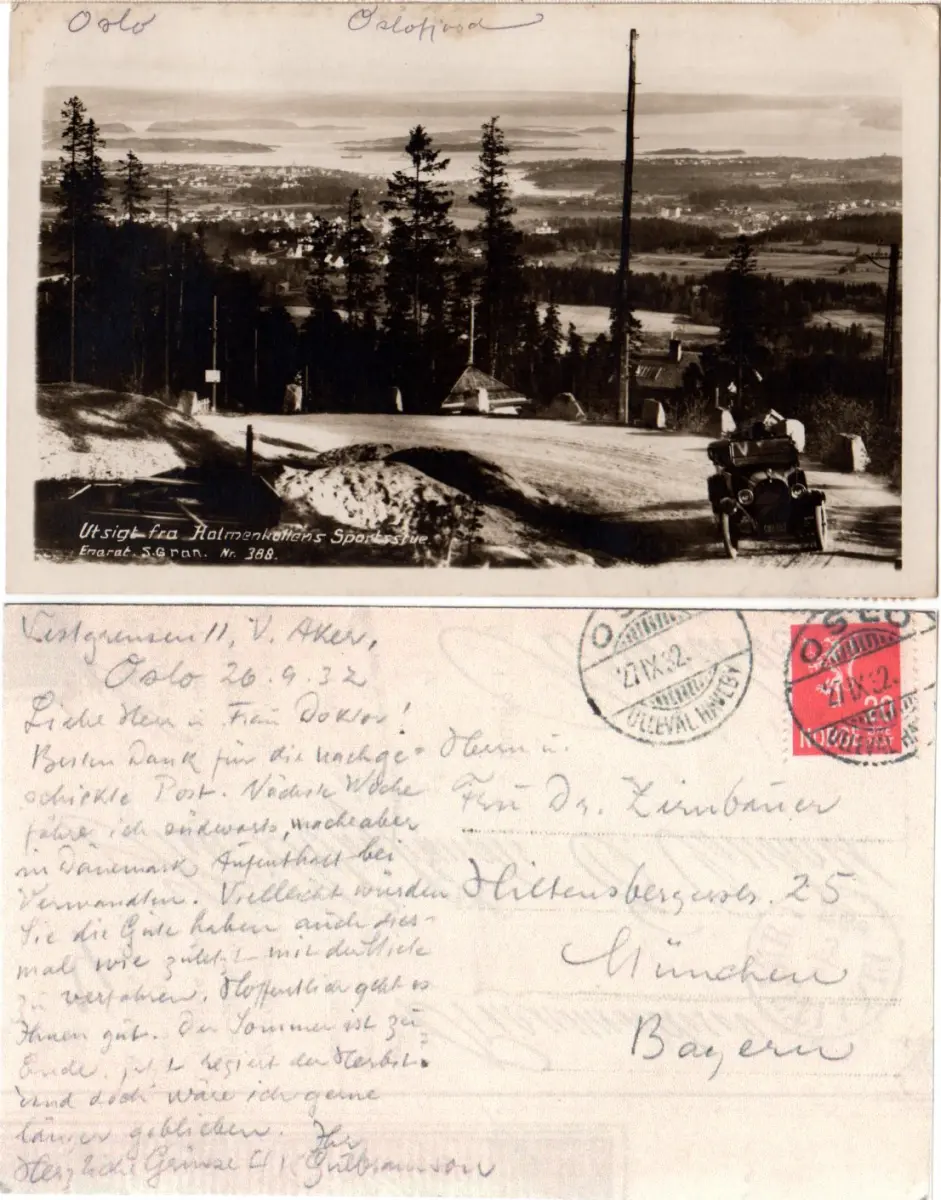 Oslo
Oslofjord
Utsigt fra Holmenkollens Sportsstue
Eneret. S. Gran. Nr. 388.
Vestgrensen 11, V. Aker,
Oslo 26.9.32
Liebe Herr u Frau Doktor!
Besten Dank für die nachge-
schickte Post. Nächste Woche
fahre ich südwärts, mache aber
in Dänemark Aufenthalt bei
Verwandten. Vielleicht würden
Sie die Güte haben auch dies-
mal wie zuletzt mit der Miete
zu verfahren. Hoffentlich geht es
Ihnen gut. Der Sommer ist zu
Ende, jetzt regiert der Herbst
und doch wäre ich gerne
länger geblieben. Ihr
Herzliche Grüsse
Gulbransson
OSLO
27 IX 32
ULLEVÅL HAVEBY
OSLO
27 IX 32
ULLEVÅL HA
20
NORGE
Herrn u.
Frau Dr. Zirnbauer
Hiltensbergerstr. 25
München
Bayern